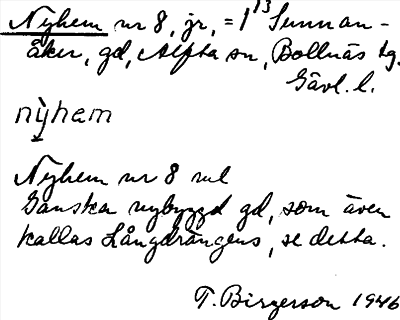 Nyhem nr 8, jr, = 1¹³ Sunnan-
åker, gd, Alfta sn, Bollnäs tg.
Gävl. l.
nỳhem
Nyhem nr 8 wl
Ganska nybyggd gd, som även
kallas Långdrängens, se detta.
T. Birgerson 1946